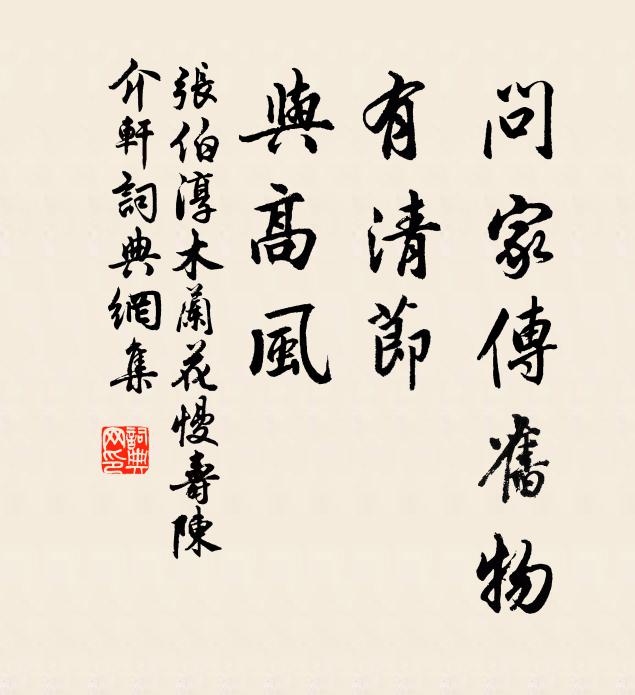 問家傳舊物
有清節
與高風
張伯淳木蘭花慢壽陳
介軒詞典網集
詞典
网印